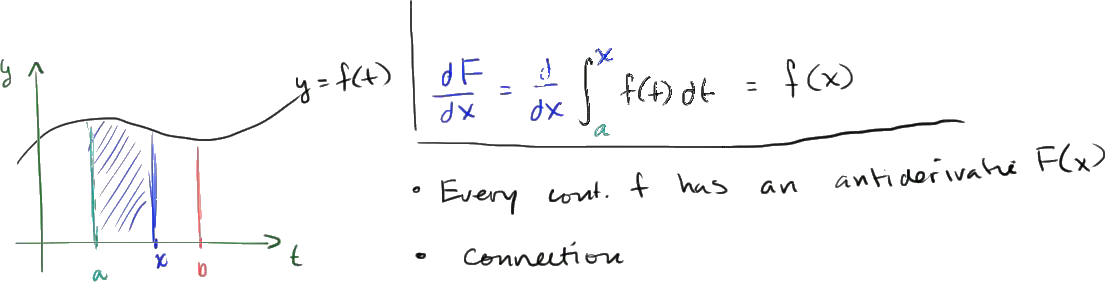 y
y = f(t)
a
x
b
t
dF/dx = d/dx ∫_a^x f(t) dt = f(x)
• Every cont. f has an antiderivative F(x)
• Connection